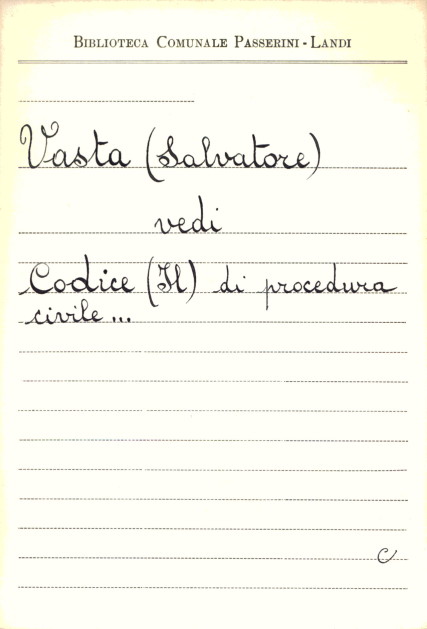 BIBLIOTECA COMUNALE PASSERINI - LANDI
Vasta (Salvatore)
vedi
Codice (Il) di procedura
civile ...
C